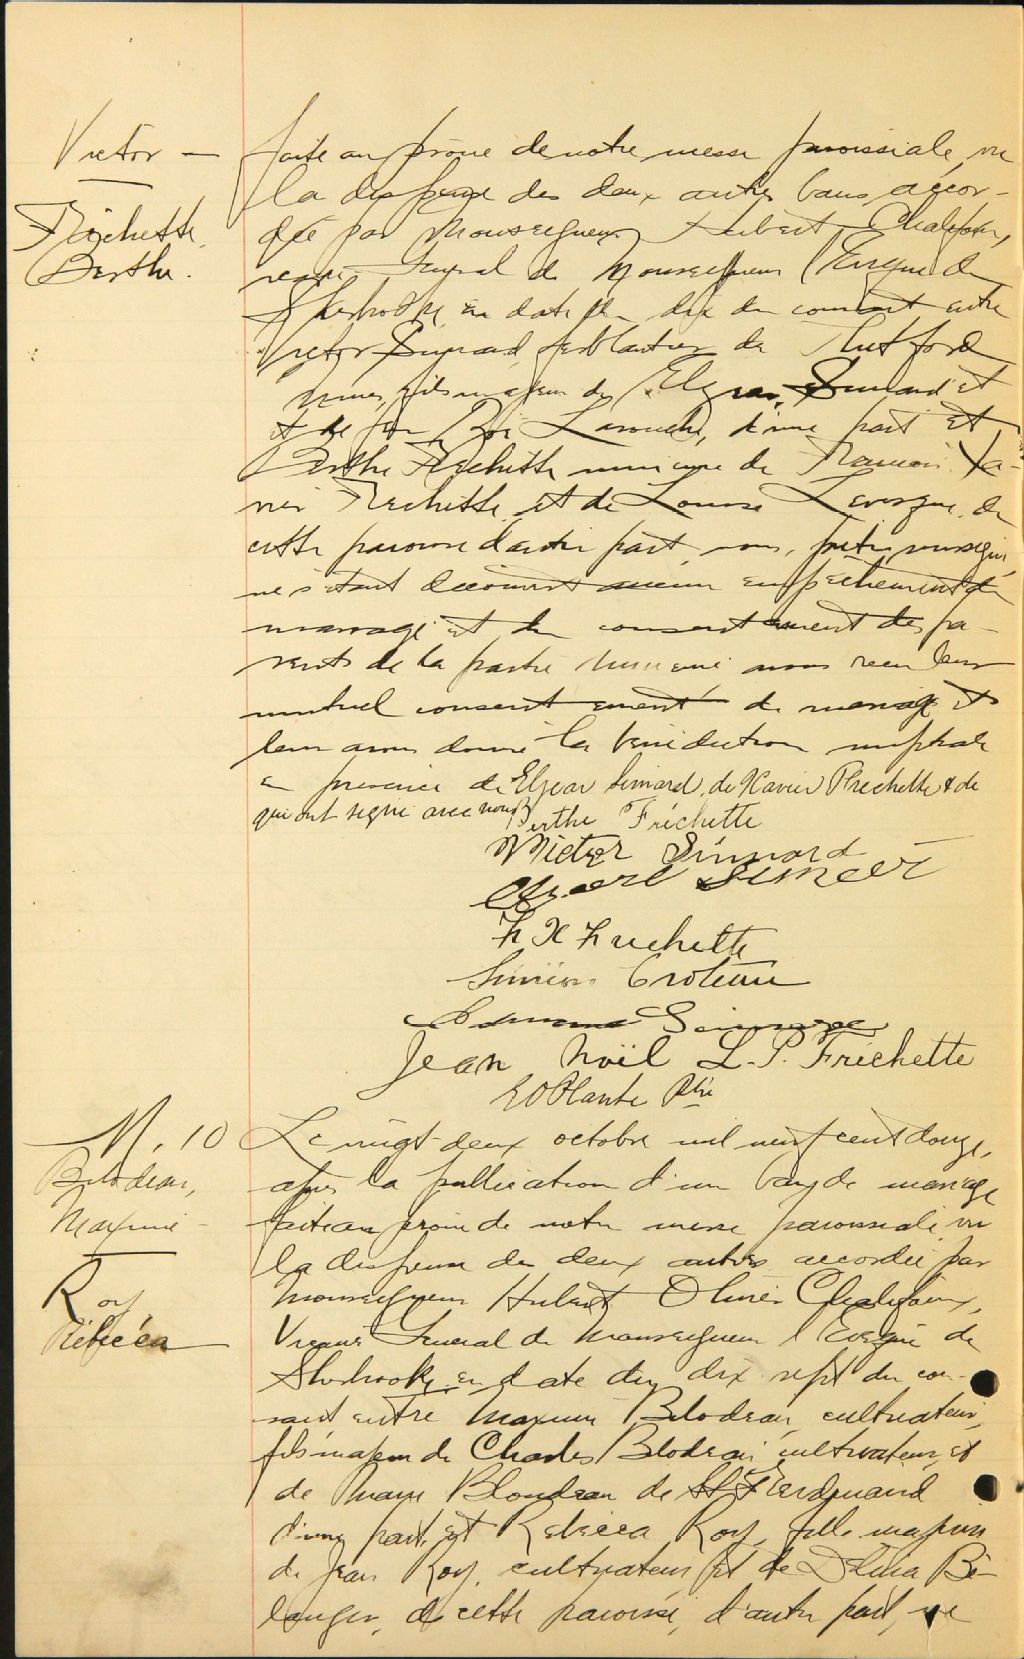 Victor —
Fréchette,
Berthe.
faite au prône de notre messe paroissiale, vu
la dispense des deux autres bans, accor-
dée par Monseigneur Hubert Chalifoux,
vicaire Général de Monseigneur l'Evêque de
Sherbrooke, en date du dix du courant entre
Victor Simard, ferblantier de Thetford
Mines, fils majeur de Elzear Simard et
et de feu Larouche, d'une part et
Berthe Fréchette mineure de François Xa-
vier Fréchette et de Louise Levesque, de
cette paroisse d'autre part, nous, prêtre soussigné,
ne s'étant découvert aucun empêchement de
mariage et du consentement des pa-
rents de la partie mineure avons reçu leur
mutuel consentement de mariage et
leur avons donné la bénédiction nuptiale
en présence de Elzear Simard, de Xavier Frechette & de
qui ont signé avec nous
Berthe Fréchette
Victor Simard
F X Frechette
Siméon Croteau
Jean Noël L. P. Fréchette
E O Plante Ptre
M. 10
Bilodeau,
Maxime —
Roy,
Rébécca
Le vingt-deux octobre mil neuf cent douze,
après la publication d'un ban de mariage
faite au prône de notre messe paroissiale, vu
la dispense des deux autres accordée par
Monseigneur Hubert Olivier Chalifoux,
Vicaire Général de Monseigneur l'Evêque de
Sherbrooke, en date du dix sept du cou-
rant entre Maxime Bilodeau, cultivateur,
fils majeur de Charles Bilodeau, cultivateur, et
de Marie Blondeau de St Ferdinand
d'une part, et Rebecca Roy, fille majeure
de Jean Roy, cultivateur et de Delina Bé-
langer, de cette paroisse, d'autre part, ne